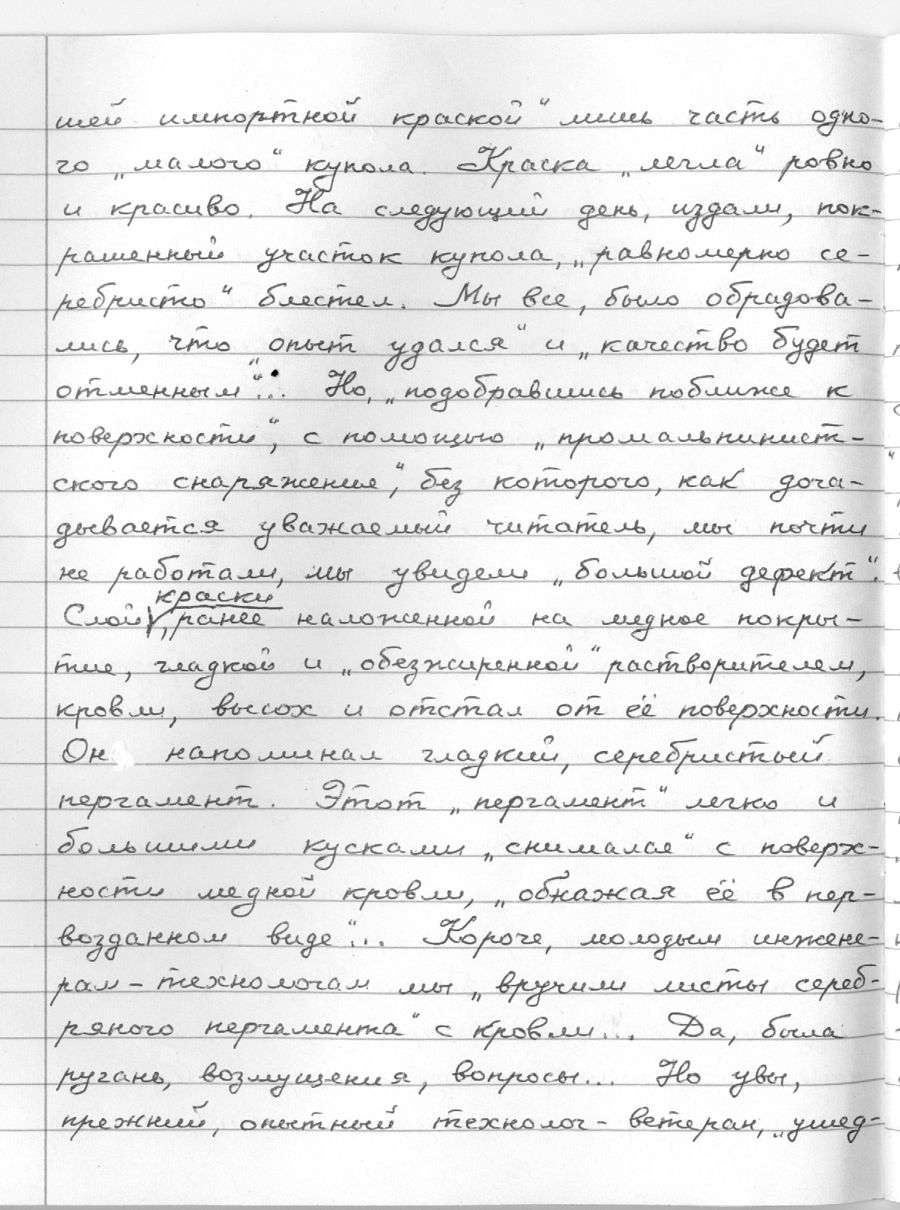 шей импортной краской" лишь часть одно-
го „малого" купола. Краска „легла" ровно
и красиво. На следующий день, издали, пок-
рашенный участок купола, „равномерно се-
ребристо" блестел. Мы все, было обрадова-
лись, что „опыт удался" и „качество будет
отменным"... Но, „подобравшись поближе к
поверхности", с помощью „промальпинист-
ского снаряжения", без которого, как дога-
дывается уважаемый читатель, мы почти
не работали, мы увидели „большой дефект".
краски
Слой, ранее наложенной на медное покры-
тие, гладкой и „обезжиренной" растворителем,
кровли, высох и отстал от её поверхности.
Он напоминал гладкий, серебристый
пергамент. Этот „пергамент" легко и
большими кусками „снимался" с поверх-
ности медной кровли, „обнажая её в пер-
возданном виде"... Короче, молодым инжене-
рам-технологам мы „вручили листы сереб-
ряного пергамента" с кровли... Да, была
ругань, возмущения, вопросы... Но увы,
прежний, опытный технолог-ветеран, „ушед-